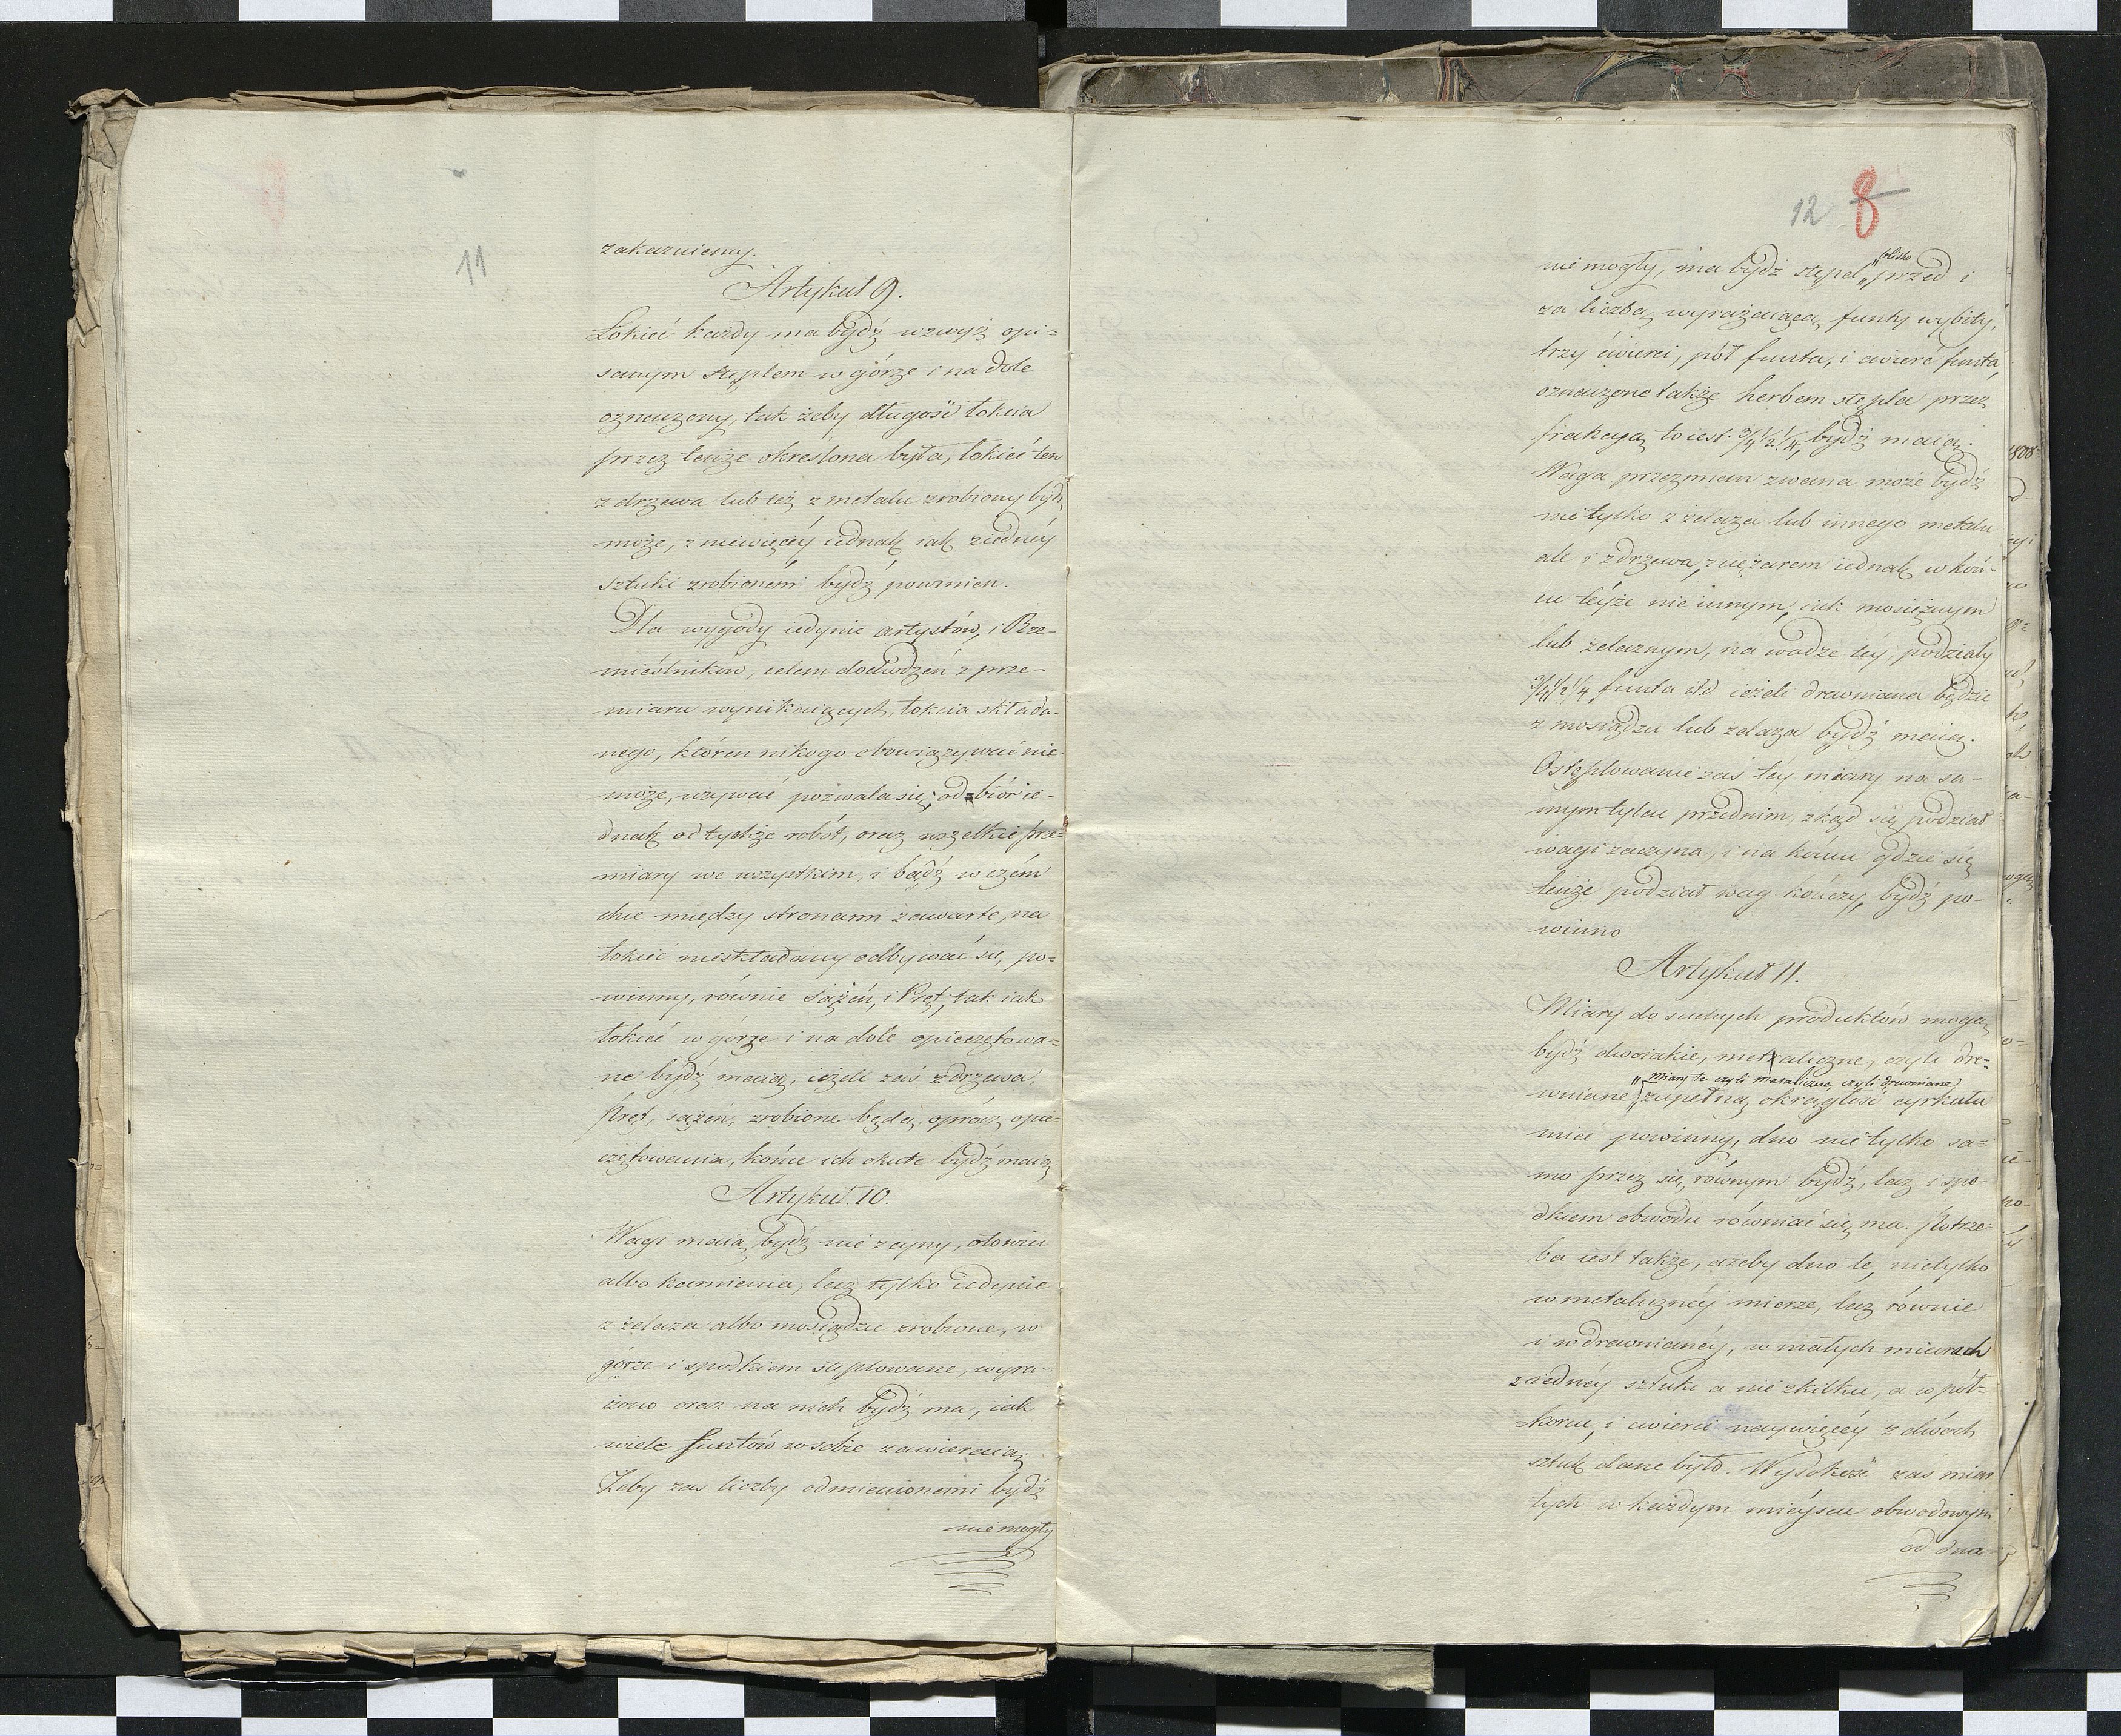 11
zakazuiemy.
Artykuł 9.
Łokieć każdy ma bydź wzwyż opi=
sanym stęplem w górze i na dole
oznaczony, tak żeby długość łokcia
przez tenże okreslona była, łokieć ten
z drzewa lub też z metalu zrobiony bydź
może, z niewięcéy iednak iak ziednéy
sztuki zrobionemi bydź powinien.
Dla wygody iedynie artystów, i Rze-
mieślników, celem dochodzeń z prze-
miaru wynikaiących, łokcia składa-
nego, któren nikogo obowiązywać nie-
może, używać pozwala się; od=biór ie-
dnak od tychże robót, oraz wszelkie prze=
miary we wszystkim, i bądź w czém
chce między stronami zawarte, na
łokieć nieskładany odbywać się, po=
winny, równie Sążeń, i Pręt, tak iak
łokieć w górze i na dole opieczętowa=
ne bydź maią, ieżeli zaś z drzewa,
Pręt, sążeń, zrobione będą, oprócz opie=
czętowania, końce ich okute bydź maią
Artykuł. 10.
Wagi maią bydź nie z cyny, ołowiu
albo kamienia, lecz tylko iedynie
z żelaza albo mosiądzu zrobione, w
górze i spodkiem stęplowane, wyra-
żono oraz na nich bydź ma, iak
wiele funtów w sobie zawieraią.
Żeby zas liczby odmienionemi bydź
nie mogły
12 8
nie mogły, ma bydź stępel „blisko„ przed i
za liczbą wyrażaiącą funty wybity,
trzy ćwierci, pół funta, i cwierć funta,
oznaczone także herbem stępla przez
frakcyą to iest: 3/4 1/2 1/4, bydź maią.
Waga przezmian zwana może bydź
nietylko z żelaza lub innego metalu
ale i zdrzewa, zciężarem iednak w koń-
cu téyże nie innym, iak mosiężnym
lub żelaznym, na wadze téy podziały
3/4 1/2 1/4 funta itd ieżeli drewniana będzie
z mosiądzu lub żelaza bydź maią.
Ostęplowanie zaś téy miary na sa-
mym tylcu przednim, zkąd się podział
wagi zaczyna, i na końcu gdzie się
tenże podział wag kończy, bydź po-
winno
Artykuł 11.
Miary do suchych produktów mogą
bydź dwoiakie, metaliczne, czyli dre=
„miary te czyli metaliczne, czyli drewniane
wniane, „zupełną okrągłość cyrkułu
mieć powinny, dno nietylko sa=
mo przez się, równym bydź, lecz i spo-
dkiem obwodu równać się ma. Potrze=
ba iest także, ażeby dno te, nietylko
w metalicznéy mierze, lecz równie
i w drewnianéy, w małych miarach
z iednéy sztuki a nie zkilku, a w pół-
=korcu, i cwierci naywięcéy z dwóch
sztuk dane było. Wysokość zas miar
tych w każdym mieyscu obwodowym
od dna